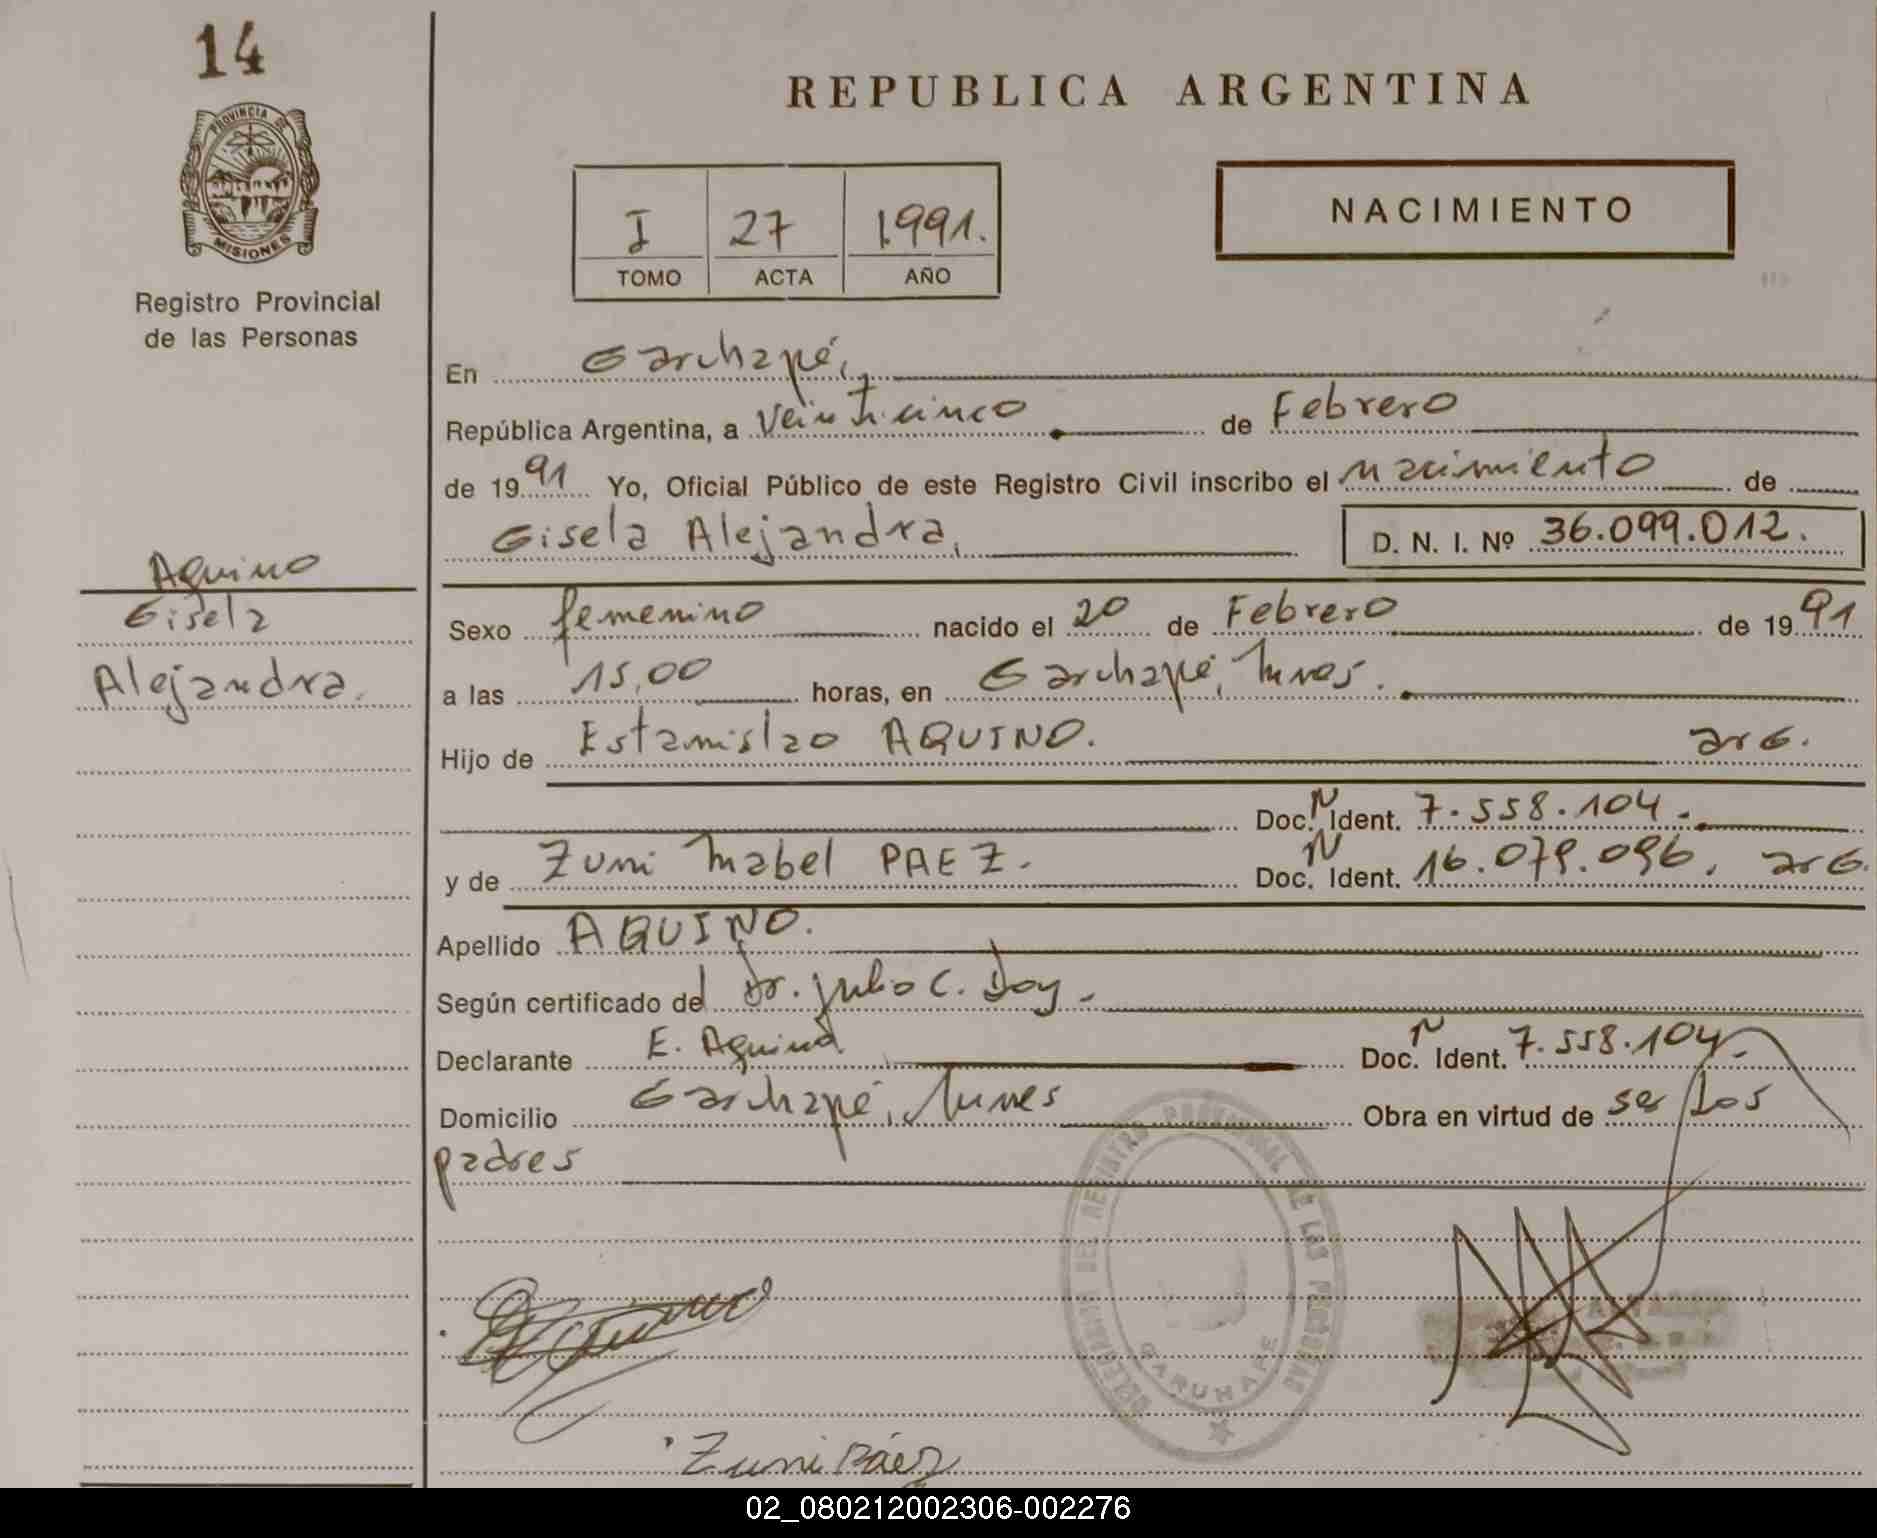 14
PROVINCIA DE
MISIONES
Registro Provincial
de las Personas
REPUBLICA ARGENTINA
I 27 1991.
TOMO ACTA AÑO
NACIMIENTO
En Garuhapé,
República Argentina, a Veinticinco de Febrero
de 1991 Yo, Oficial Público de este Registro Civil inscribo el nacimiento de
Gisela Alejandra, D. N. I. Nº 36.099.012.
Aquino
Gisela
Alejandra.
Sexo femenino nacido el 20 de Febrero de 1991
a las 15,00 horas, en Garuhapé, Mnes.
Hijo de Estanislao AQUINO. arG.
Doc. N Ident. 7.558.104.
y de Zuni Mabel PAEZ. Doc. N Ident. 16.079.096. arG.
Apellido AQUINO.
Según certificado del Dr. Julio C. Doy.
Declarante E. Aquino Doc. N Ident. 7.558.104.
Domicilio Garuhapé, Mnes Obra en virtud de ser los
padres
DEL REGISTRO PROVINCIAL DE LAS PERSONAS
GARUHAPE
Zuni Páez
02_080212002306-002276